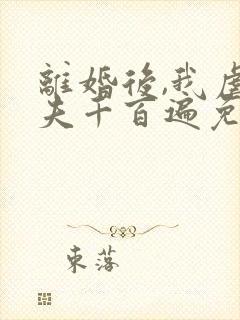 離婚後,我虐
夫千百遍免
東落